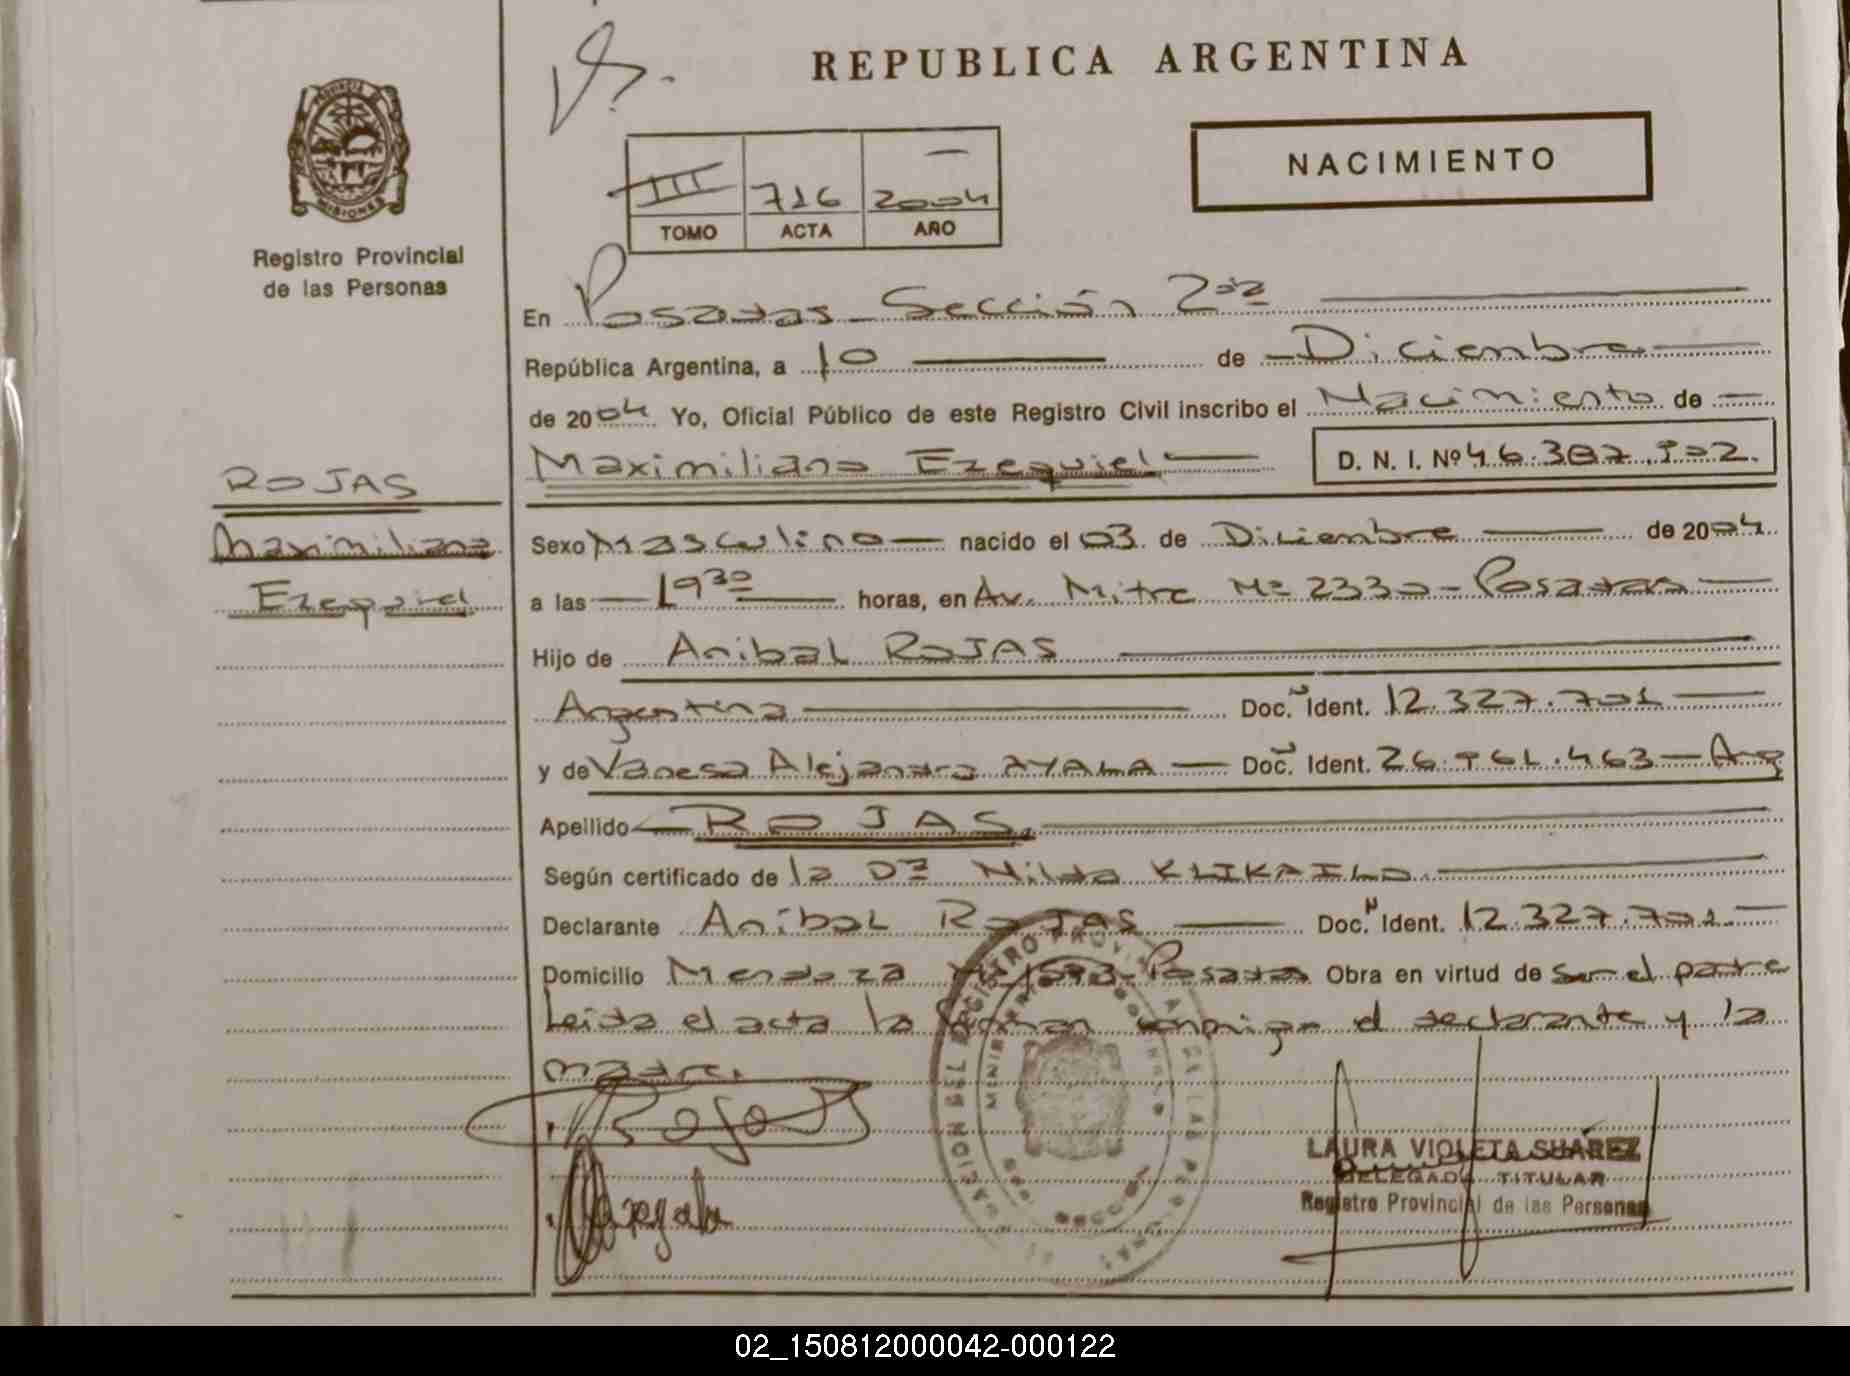 REPUBLICA ARGENTINA
NACIMIENTO
PROVINCIA DE
MISIONES
Registro Provincial
de las Personas
III 716 2004
TOMO ACTA AÑO
En Posadas - Sección 2da
República Argentina, a 10 de Diciembre
de 2004 Yo, Oficial Público de este Registro Civil inscribo el Nacimiento de
Maximiliano Ezequiel D. N. I. Nº 46.387.902.
ROJAS
Maximiliano
Ezequiel
Sexo Masculino nacido el 03 de Diciembre de 2004
a las 19 30 horas, en Av. Mitre Nº 2330 - Posadas
Hijo de Anibal ROJAS
Argentina Doc. N Ident. 12.327.701
y de Vanesa Alejandra AYALA Doc. N Ident. 26.961.463 - Arg
Apellido ROJAS.
Según certificado de la Dra Nilda
Declarante Anibal ROJAS Doc. N Ident. 12.327.701
Domicilio Mendoza Nº Posadas Obra en virtud de Ser el padre
Leida el acta la firman conmigo el declarante y la
madre.
Rojas
LAURA VIOLETA SUÁREZ
DELEGADA TITULAR
Registro Provincial de las Personas
02_150812000042-000122